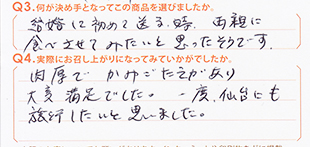 Q3.何が決め手となってこの商品を選びましたか。
結婚に初めて送る時、両親に
食べさせてみたいと思ったそうです。
Q4.実際にお召し上がりになってみていかがでしたか。
肉厚で かみごたえがあり
大変満足でした。一度、仙台にも
旅行したいと思いました。